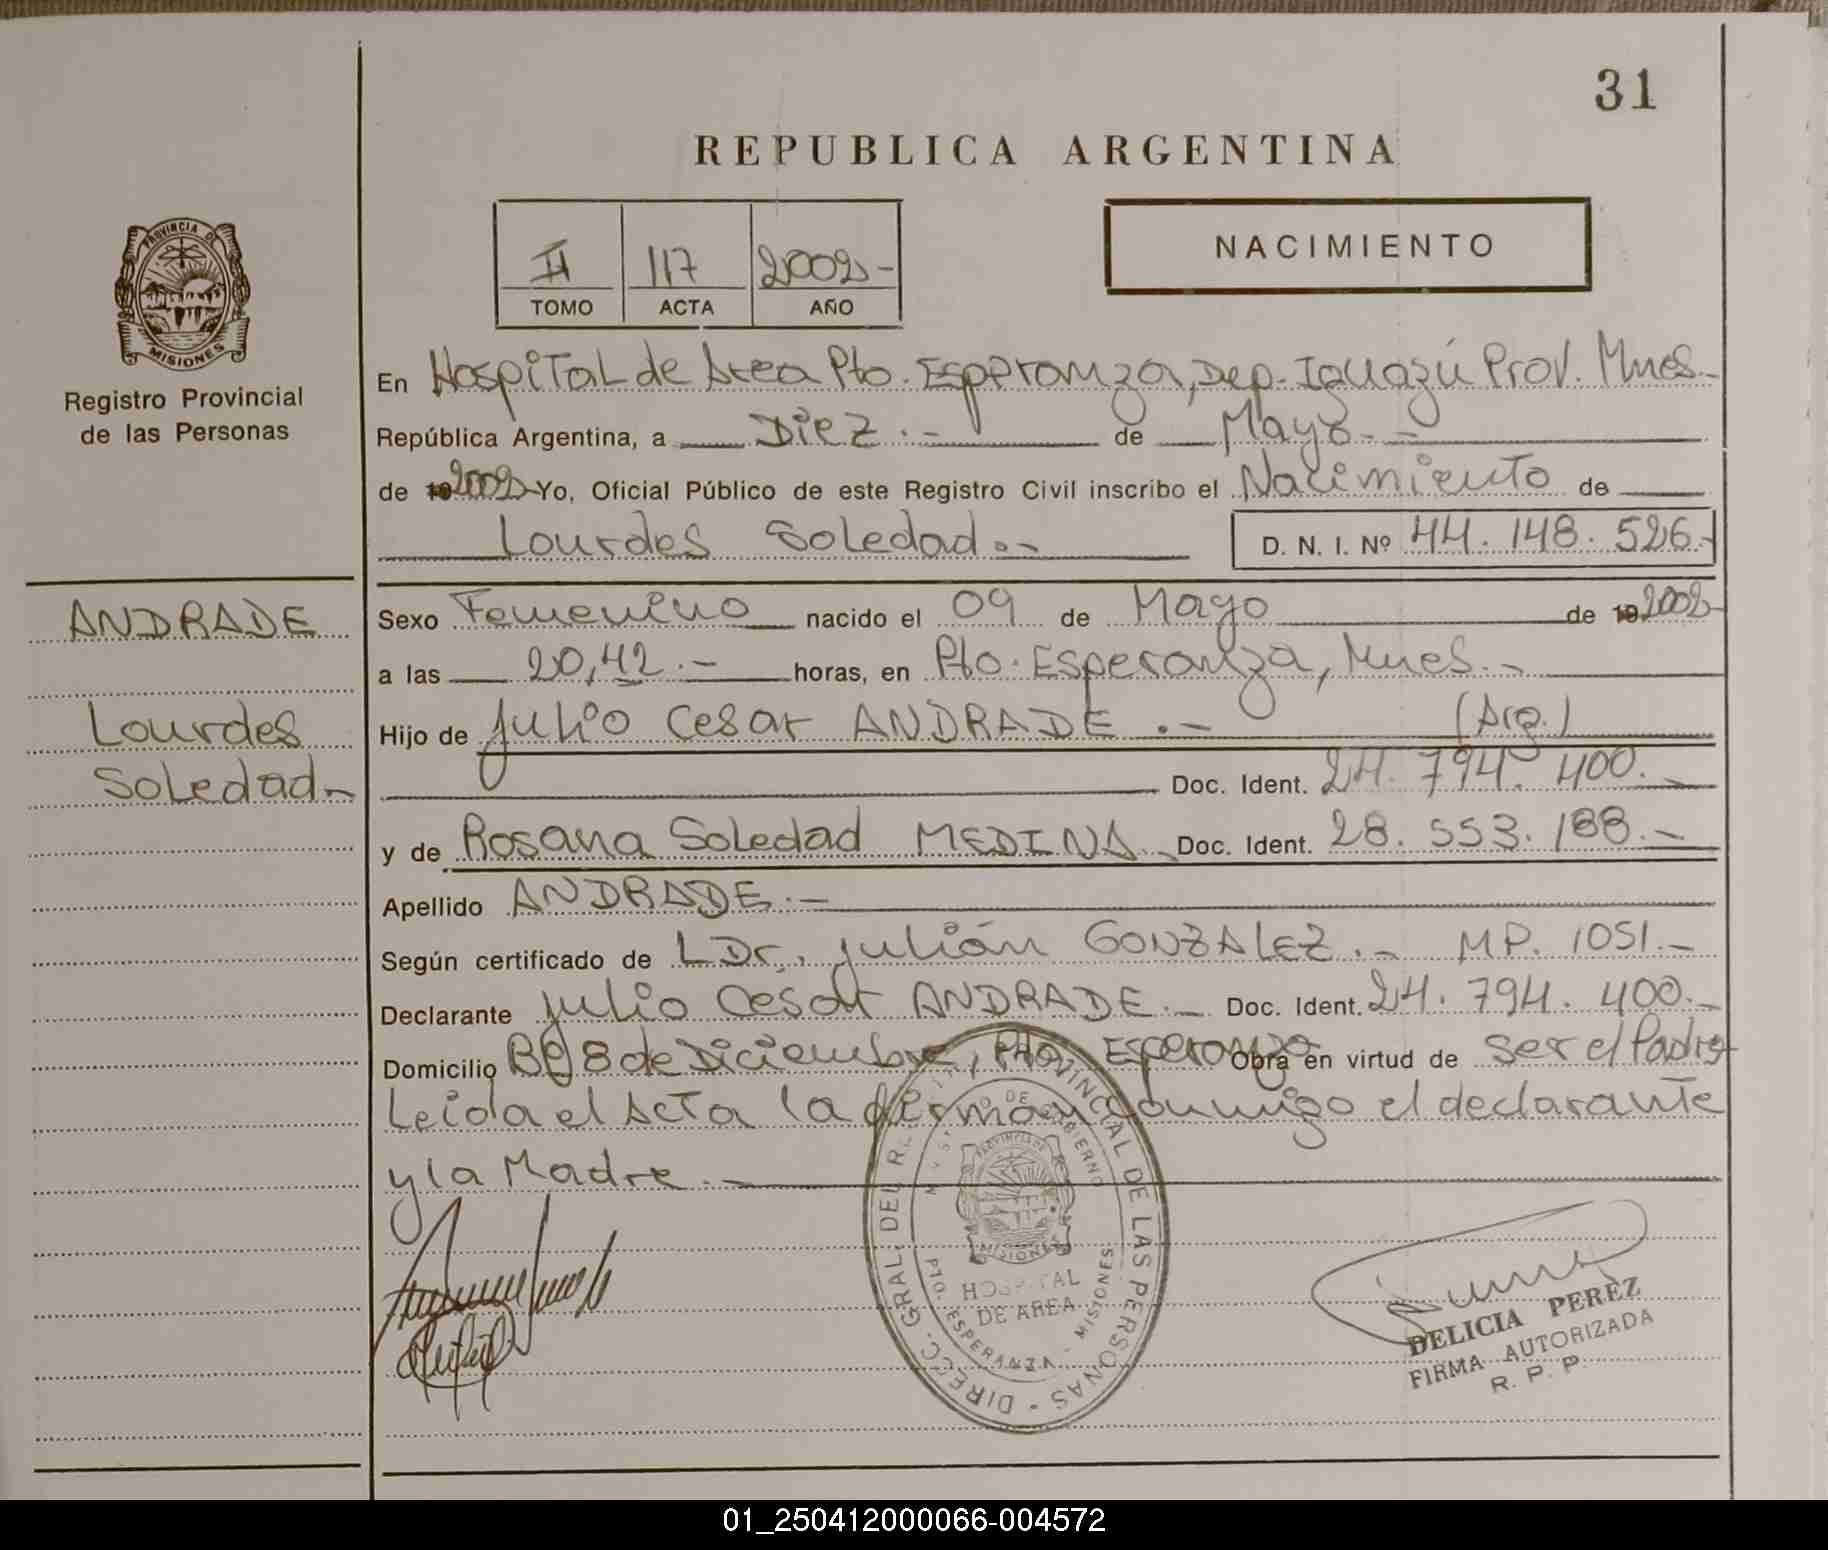 31
REPUBLICA ARGENTINA
II 117 2002-
TOMO ACTA AÑO
NACIMIENTO
PROVINCIA DE
MISIONES
Registro Provincial
de las Personas
En Hospital de Area Pto. Esperanza, Dep. Iguazú Prov. Mnes.-
República Argentina, a Diez.- de Mayo.-
de 19 2002 Yo, Oficial Público de este Registro Civil inscribo el Nacimiento de
Lourdes Soledad.- D. N. I. Nº 44.148.526.-
ANDRADE
Lourdes
Soledad.-
Sexo Femenino nacido el 09 de Mayo de 19 2002-
a las 20,42.- horas, en Pto. Esperanza, Mnes.-
Hijo de Julio Cesar ANDRADE.- (Arg.)
Doc. Ident. 24.794.400.-
y de Rosana Soledad MEDINA.- Doc. Ident. 28.553.188.-
Apellido ANDRADE.-
Según certificado de Dr. Julián GONZALEZ.- MP. 1051.-
Declarante Julio Cesar ANDRADE.- Doc. Ident. 24.794.400.-
Domicilio Bº 8 de Diciembre, Pto. Esperanza Obra en virtud de ser el Padre
Leida el Acta la firman conmigo el declarante
y la Madre.-
DIRECC. GRAL. DEL REGISTRO PROVINCIAL DE LAS PERSONAS
MINISTERIO DE GOBIERNO
PROVINCIA DE
MISIONES
HOSPITAL
DE AREA
PTO. ESPERANZA - MISIONES
DELICIA PEREZ
FIRMA AUTORIZADA
R. P. P.
01_250412000066-004572